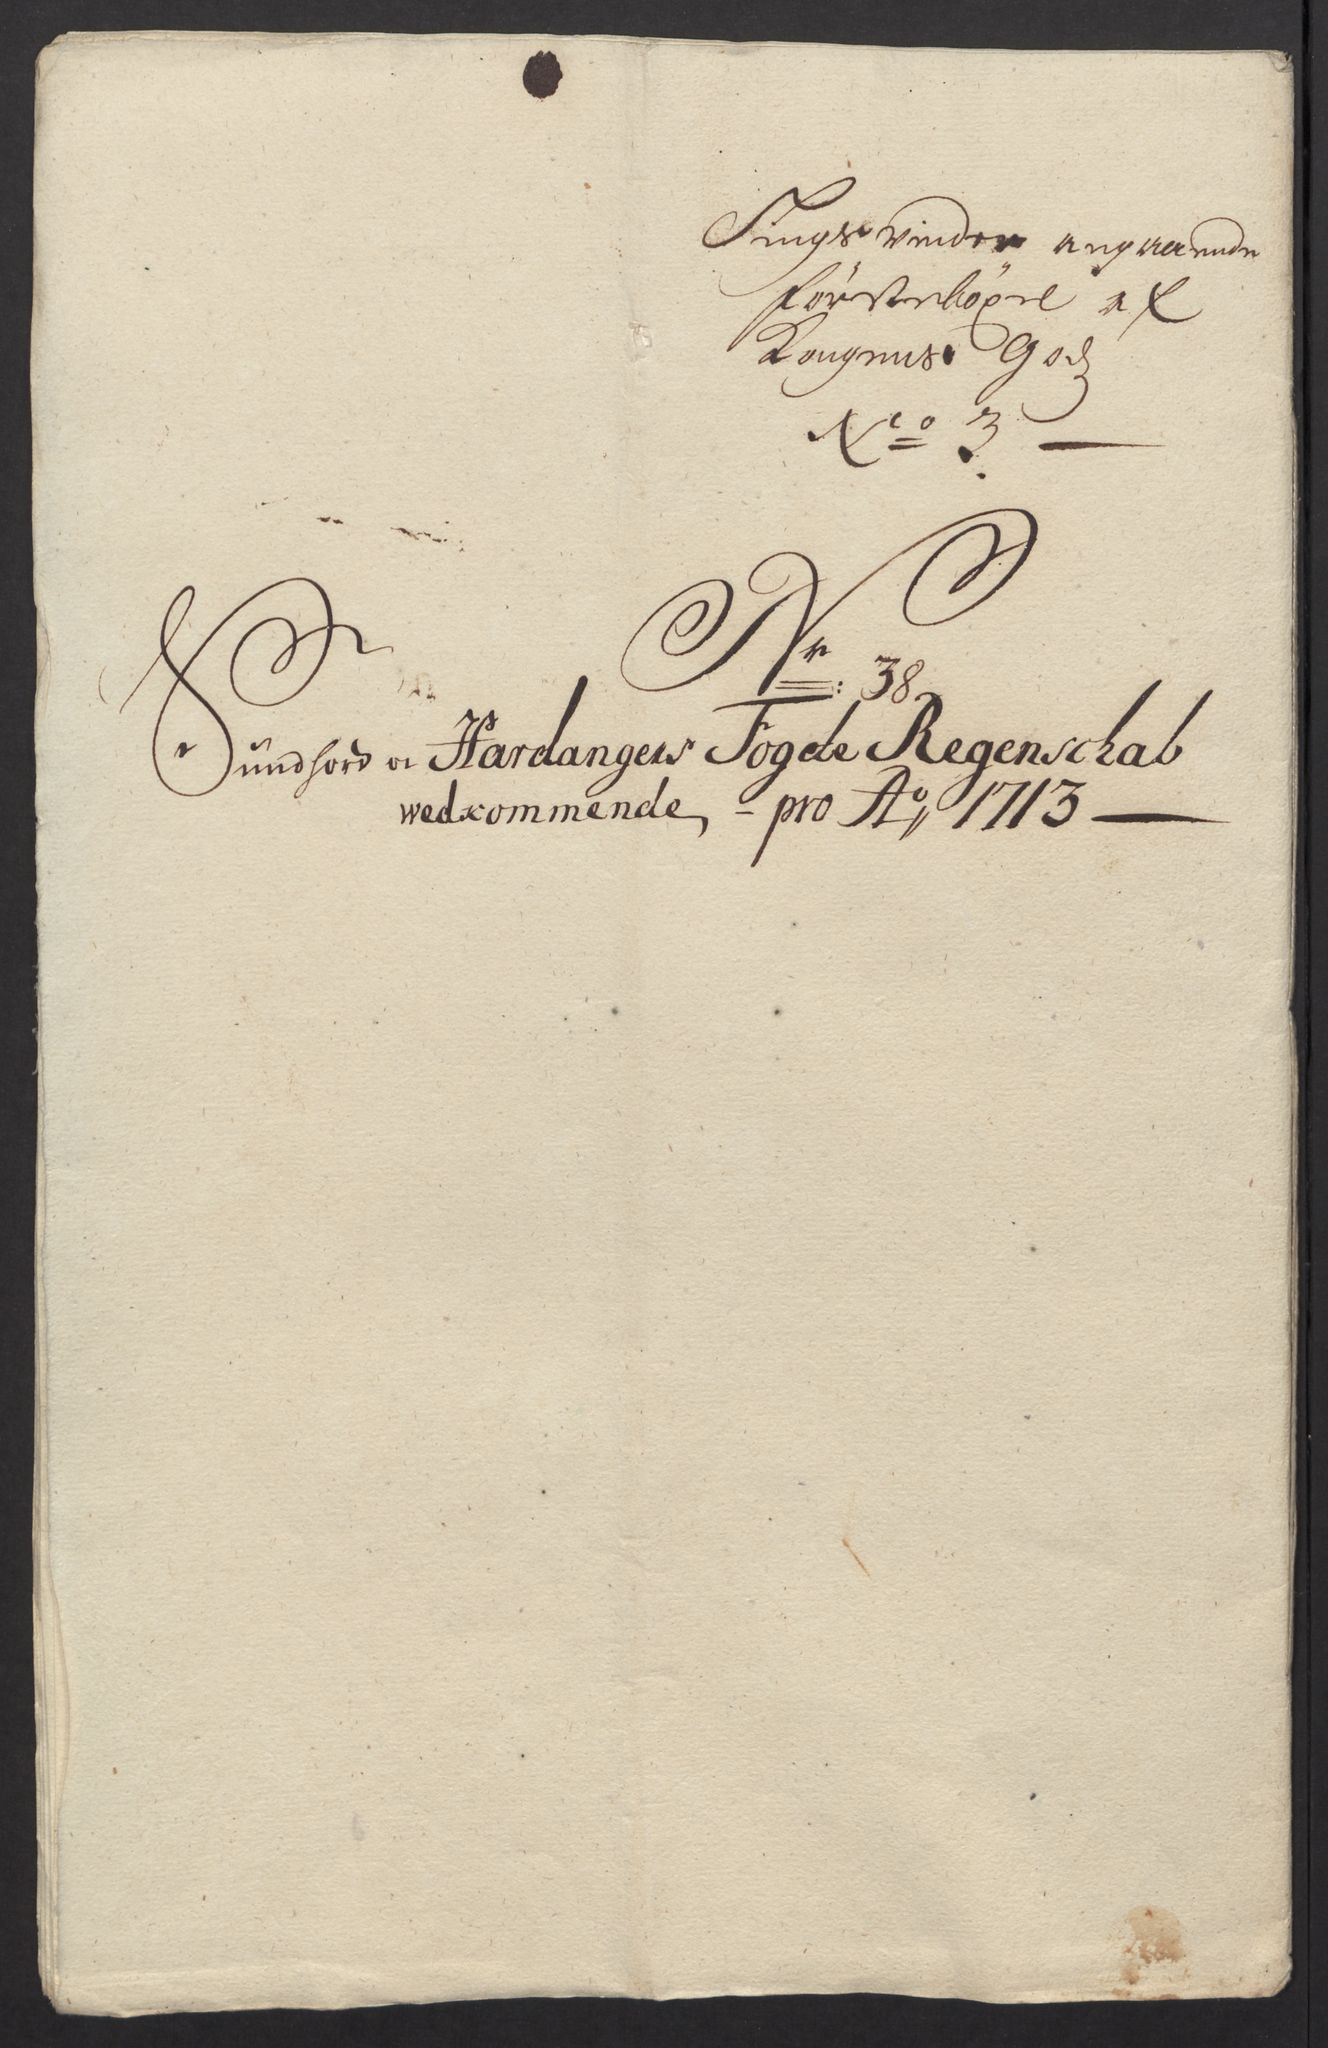 Tingsvinder angaaende
försteböxel af
Kongens Godz
No 3
Nr: 38
Sündhord oc Hardangers Fogde Regenschab
wedkommende, - pro Ao 1713